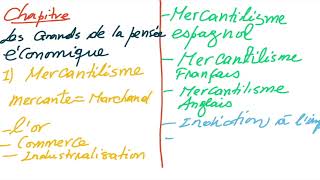 Chapitre
Les Grands de la pensée
économique
I) Mercantilisme
mercante = Marchand
- l'or
- Commerce
- Industrialisation
- Mercantilisme
espagnol
- Mercantilisme
Français
- Mercantilisme
Anglais
- Indiction à l'imp
-